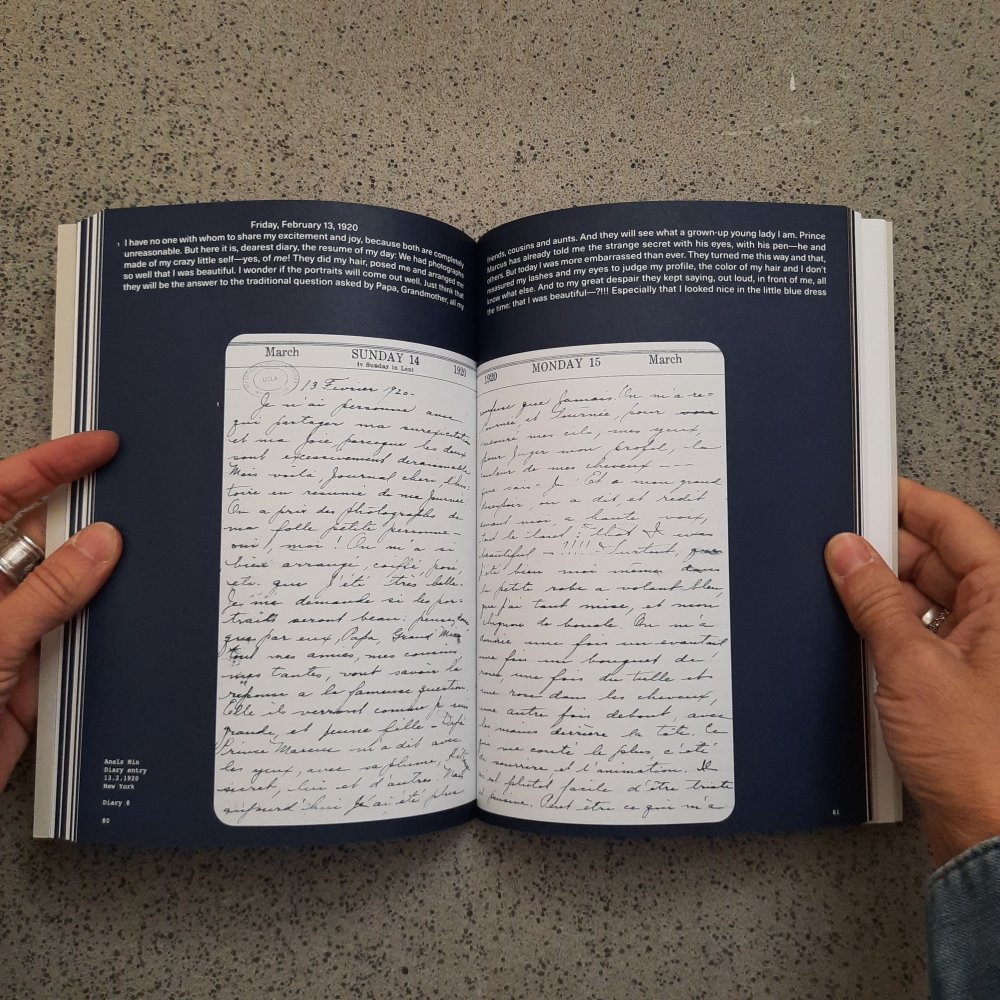 Friday, February 13, 1920
1 I have no one with whom to share my excitement and joy, because both are completely
unreasonable. But here it is, dearest diary, the resume of my day: We had photographs
made of my crazy little self—yes, of me! They did my hair, posed me and arranged me
so well that I was beautiful. I wonder if the portraits will come out well. Just think that
they will be the answer to the traditional question asked by Papa, Grandmother, all my
friends, cousins and aunts. And they will see what a grown-up young lady I am. Prince
Marcus has already told me the strange secret with his eyes, with his pen—he and
others. But today I was more embarrassed than ever. They turned me this way and that,
measured my lashes and my eyes to judge my profile, the color of my hair and I don't
know what else. And to my great despair they kept saying, out loud, in front of me, all
the time: that I was beautiful—?!!! Especially that I looked nice in the little blue dress
March SUNDAY 14 1920
iv Sunday in Lent
UCLA
1
13 Fevrier 1920-
Je n'ai personne avec
qui partager ma surexcitation
et ma joie parceque les deux
sont excessivement
Mais voilà, Journal cheri, l'his-
toire en resumé de ma Journée:
On a pris des photographs de
ma folle petite personne-
oui, moi! On m'a si
bien arrangé, coiffé, posé,
etc. que j'été très belle.
Je me demande si les por-
traits seront beau: pensez,
que par eux, Papa, Grand Mère
tout mes amies, mes cousins
mes tantes, vont savoir la
reponse a la fameuse question.
Elle ils verront comme je suis
grande, et jeune fille - Déjà
Prince Marcus m'a dit avec
les yeux, avec sa plume,
secret, lui et d'autres. Mais
aujourd'hui J'ai été plus
1920 MONDAY 15 March
confuse que Jamais. On m'a re-
tournée, et tournée, pour
mesuré mes cils, mes yeux,
pour Juger mon profil, -la
couleur de mes cheveux - -
que sais-Je! Et a mon grand
desespoir, on a dit et redit
devant moi, a haute voix,
tout le tout; that I was
beautiful - !!!! Surtout, que
j'été bien moi même dans
la petite robe a volant bleu,
que j'ai tant mise, et mon
chignon de boucle. On m'a
une fois un evantail
une fois un bouquet de
rose une fois du tulle et
une rose dans les cheveux,
une autre fois debout, avec
les mains derrière la tête. Ce
qui me couté le plus, c'été
de sourire et l'animation. Il
m'est plutôt facile d'être triste
et pensive. Peut être ce qui m'a
Anaïs Nin
Diary entry
13.2.1920
New York
Diary 8
80
81